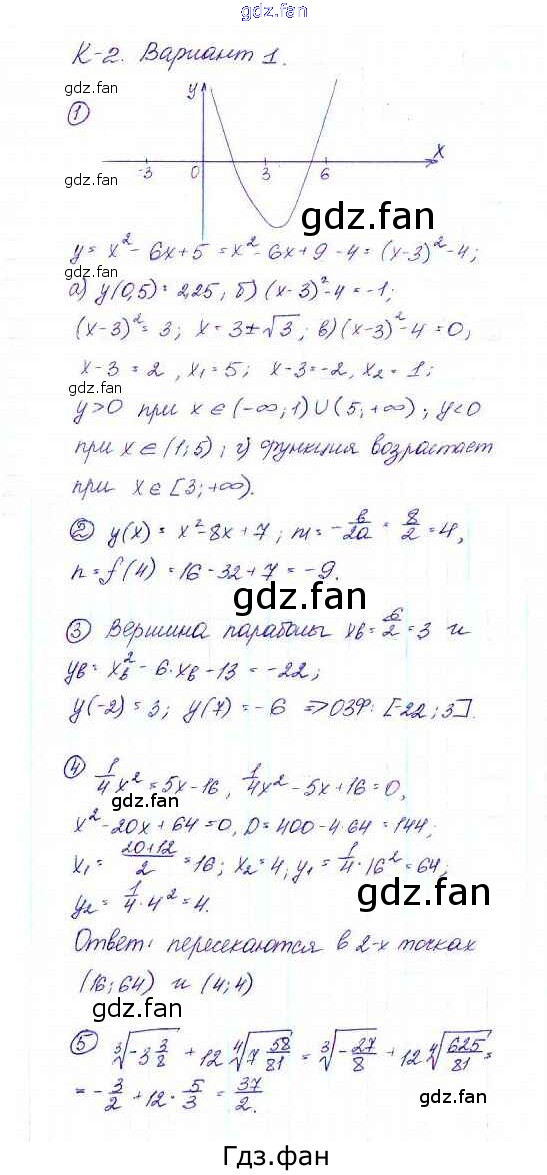 gdz.fan
К-2. Вариант 1.
gdz.fan
①
y
x
-3 0 3 6
gdz.fan
gdz.fan
y = x² - 6x + 5 = x² - 6x + 9 - 4 = (x-3)² - 4;
а) y(0,5) = 2,25; б) (x-3)² - 4 = -1;
(x-3)² = 3; x = 3 ± √3; в) (x-3)² - 4 = 0;
x-3 = 2, x₁ = 5; x-3 = -2, x₂ = 1;
gdz.fan
y>0 при x ∈ (-∞; 1) ∪ (5; +∞); y<0
при x ∈ (1; 5); г) функция возрастает
при x ∈ [3; +∞).
② y(x) = x² - 8x + 7; m = -в/2a = 8/2 = 4,
n = f(4) = 16 - 32 + 7 = -9.
gdz.fan
③ Вершина параболы xв = 6/2 = 3 и
yв = xв² - 6·xв - 13 = -22;
y(-2) = 3; y(7) = -6 ⇒ ОЗФ: [-22; 3].
④ 1/4 x² = 5x - 16, 1/4 x² - 5x + 16 = 0,
gdz.fan
x² - 20x + 64 = 0, D = 400 - 4·64 = 144;
x₁ = (20+12)/2 = 16; x₂ = 4; y₁ = 1/4 · 16² = 64;
y₂ = 1/4 · 4² = 4.
gdz.fan
Ответ: пересекаются в 2-х точках
(16; 64) и (4; 4)
gdz.fan
⑤ ∛(-3 3/8) + 12 ∜(7 58/81) = ∛(-27/8) + 12 ∜(625/81) =
= -3/2 + 12 · 5/3 = 37/2.
gdz.fan
Гдз.фан